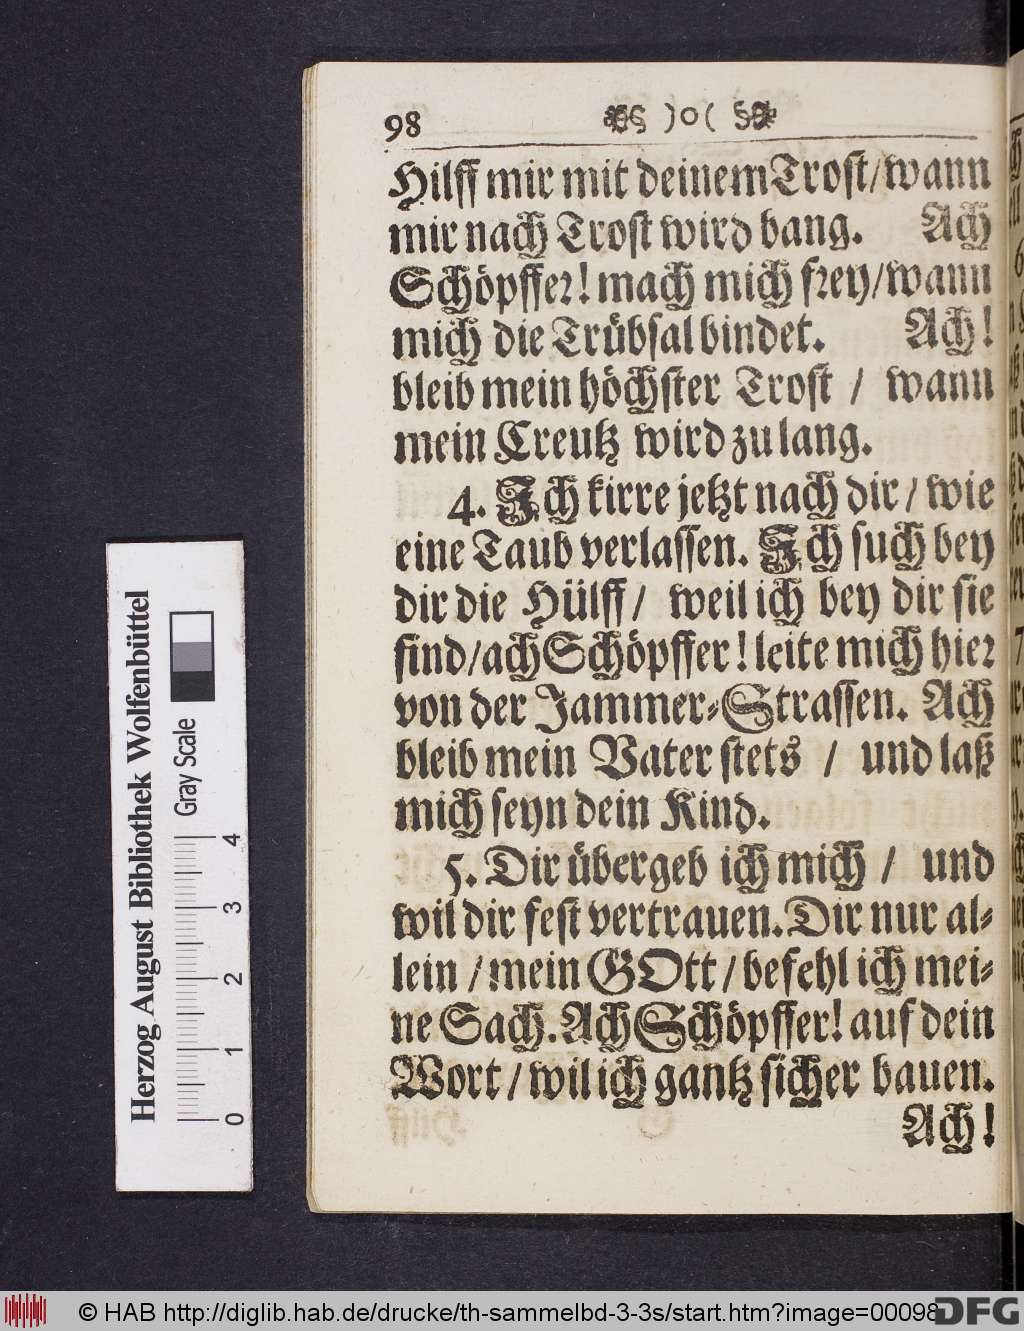 98 )o(
Hilff mir mit deinem Trost/wann
mir nach Trost wird bang. Ach
Schöpffer! mach mich frey/wann
mich die Trübsal bindet. Ach!
bleib mein höchster Trost / wann
mein Creutz wird zu lang.
4. Ich kirre jetzt nach dir / wie
eine Taub verlassen. Ich such bey
dir die Hülff / weil ich bey dir sie
find/ach Schöpffer! leite mich hier
von der Jammer-Strassen. Ach
bleib mein Vater stets / und laß
mich seyn dein Kind.
5. Dir übergeb ich mich / und
wil dir fest vertrauen. Dir nur al-
lein / mein GOtt / befehl ich mei-
ne Sach. Ach Schöpffer! auf dein
Wort / wil ich gantz sicher bauen.
Ach!
Herzog August Bibliothek Wolfenbüttel
Gray Scale
0 1 2 3 4
© HAB http://diglib.hab.de/drucke/th-sammelbd-3-3s/start.htm?image=00098
DFG